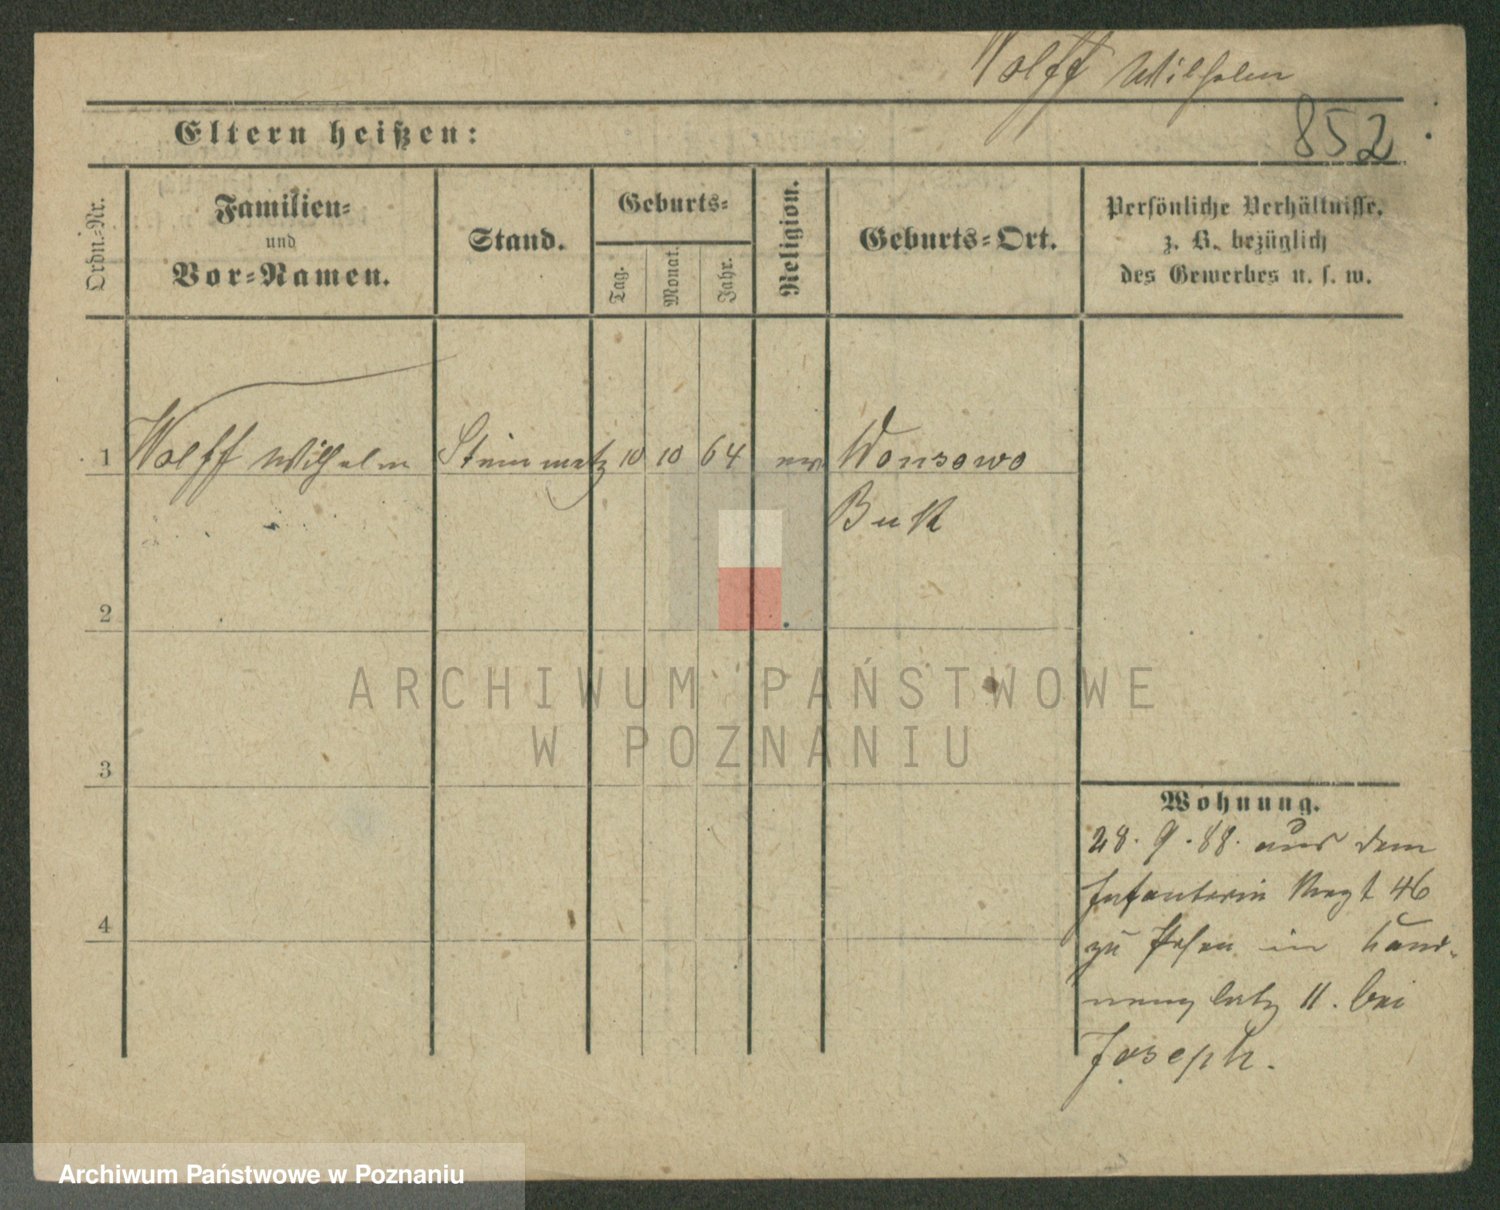 Wolff Wilhelm
852
Eltern heißen:
Ordn.-Nr.
Familien-
und
Vor-Namen.
Stand.
Geburts-
Tag.
Monat.
Jahr.
Religion.
Geburts-Ort.
Persönliche Verhältnisse,
z. B. bezüglich
des Gewerbes u. s. w.
1 Wolff Wilhelm Steinmetz 10 10 64 ev Wonsowo
Buk
2
3
4
Wohnung.
28. 9. 88. aus dem
Infanterie Regt 46
zu Posen in
11. bei
Joseph.
ARCHIWUM PAŃSTWOWE
W POZNANIU
Archiwum Państwowe w Poznaniu